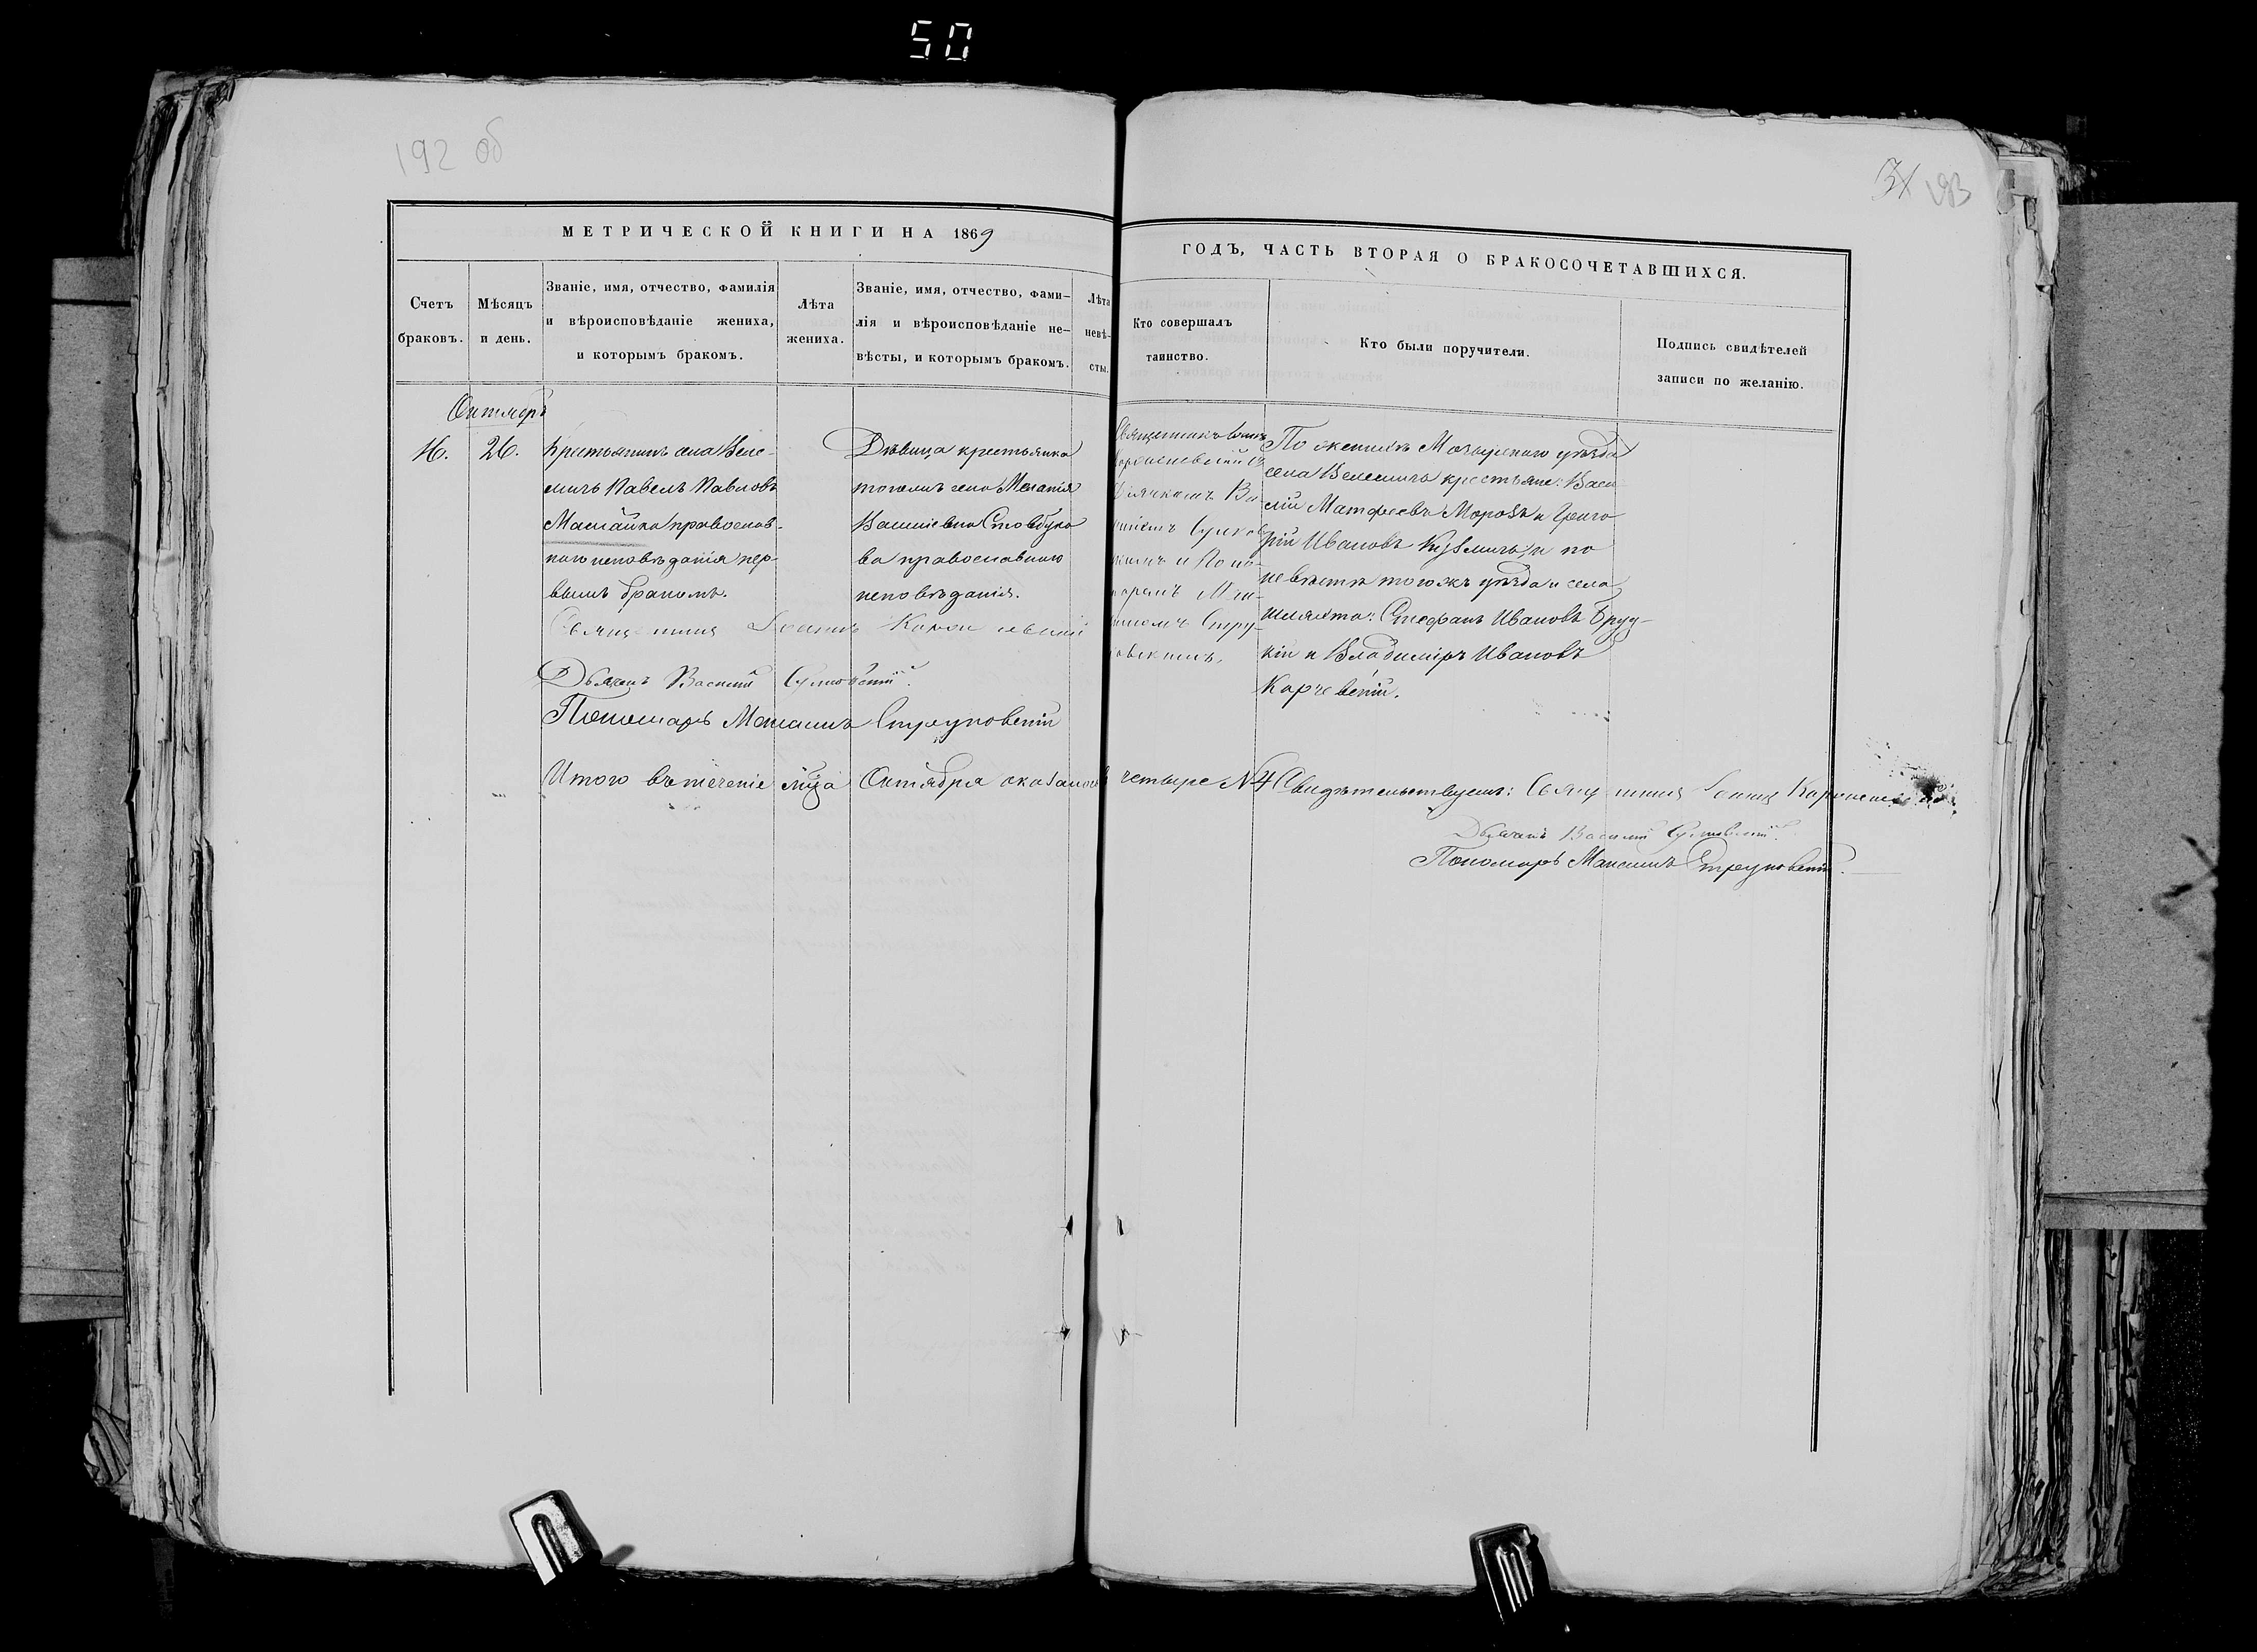 50
192 об
193
МЕТРИЧЕСКОЙ КНИГИ НА 1869
ГОДЪ, ЧАСТЬ ВТОРАЯ О БРАКОСОЧЕТАВШИХСЯ.
Счетъ браковъ.
Мѣсяцъ и день.
Званіе, имя, отчество, фамилія
и вѣроисповѣданіе жениха,
и которымъ бракомъ.
Лѣта
жениха.
Званіе, имя, отчество, фами-
лія и вѣроисповѣданіе не-
вѣсты, и которымъ бракомъ.
Лѣта
невѣ-
сты.
Кто совершалъ
таинство.
Кто были поручители.
Подпись свидѣтелей
записи по желанію.
Октябрь
16.
26.
Крестьянинъ села Веле-
мичъ Павелъ Павловъ
Машайко православ-
наго исповѣданія пер-
вымъ бракомъ.
Дѣвица крестьянка
того же села Меланія
Стовбуно
ва православнаго
исповѣданія.
Священникъ Іоаннъ
Дьячкомъ Ва-
По женихѣ Мозырскаго уѣзда
села Велемичъ крестьяне: Васи
лій Матфеевъ Морозъ и Григо
рій Ивановъ Кузьмичъ, и по
невѣстѣ того же уѣзда и села
шляхта: Стефанъ Ивановъ Бруц-
кій и Владиміръ Ивановъ
Корчевскій.
Священникъ Іоаннъ
Дьячокъ Василій
Пономарь Максимъ Струковскій
Итого въ теченіе м͠ца Октября оказалось четыре №4 Свидѣтельствуемъ: Священникъ Іоаннъ
Дьячокъ Василій
Пономарь Максимъ Струковскій.